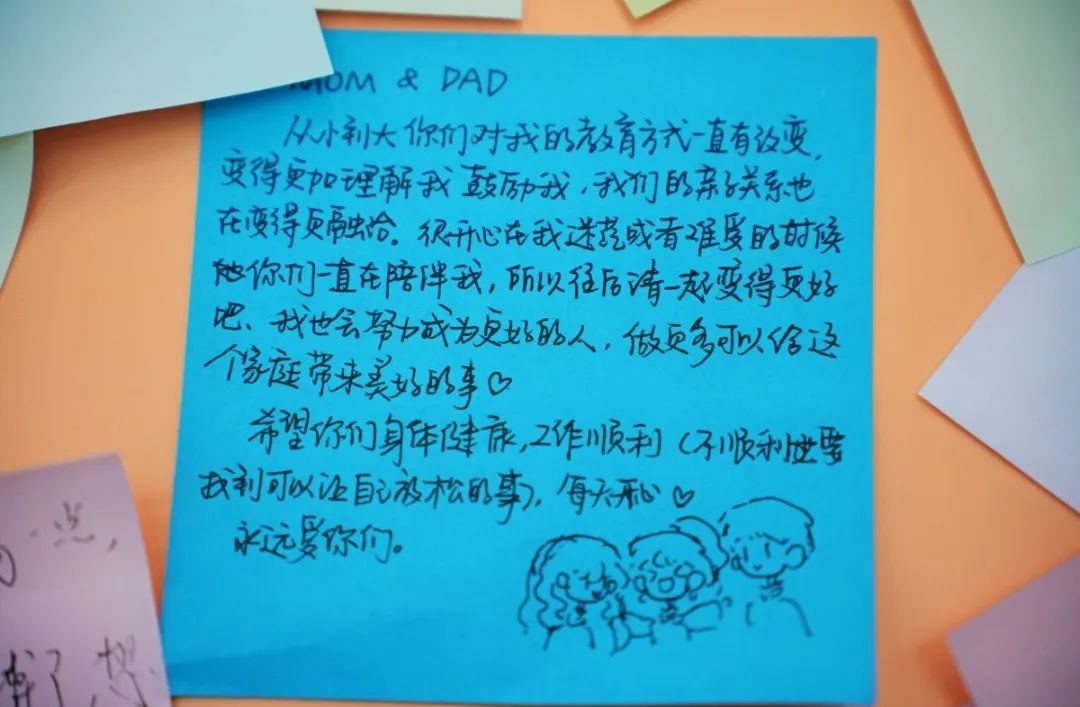 MOM & DAD
从小到大你们对我的教育方式一直有改变,
变得更加理解我 鼓励我,我们的亲子关系也
在变得更融洽。很开心在我迷茫或者难受的时候
你们一直在陪伴我,所以往后请一起变得更好
吧、我也会努力成为更好的人,做更多可以给这
个家庭带来美好的事♡
希望你们身体健康,工作顺利(不顺利也要
找到可以让自己放松的事),每天开心♡
永远爱你们。
一点,
了,想